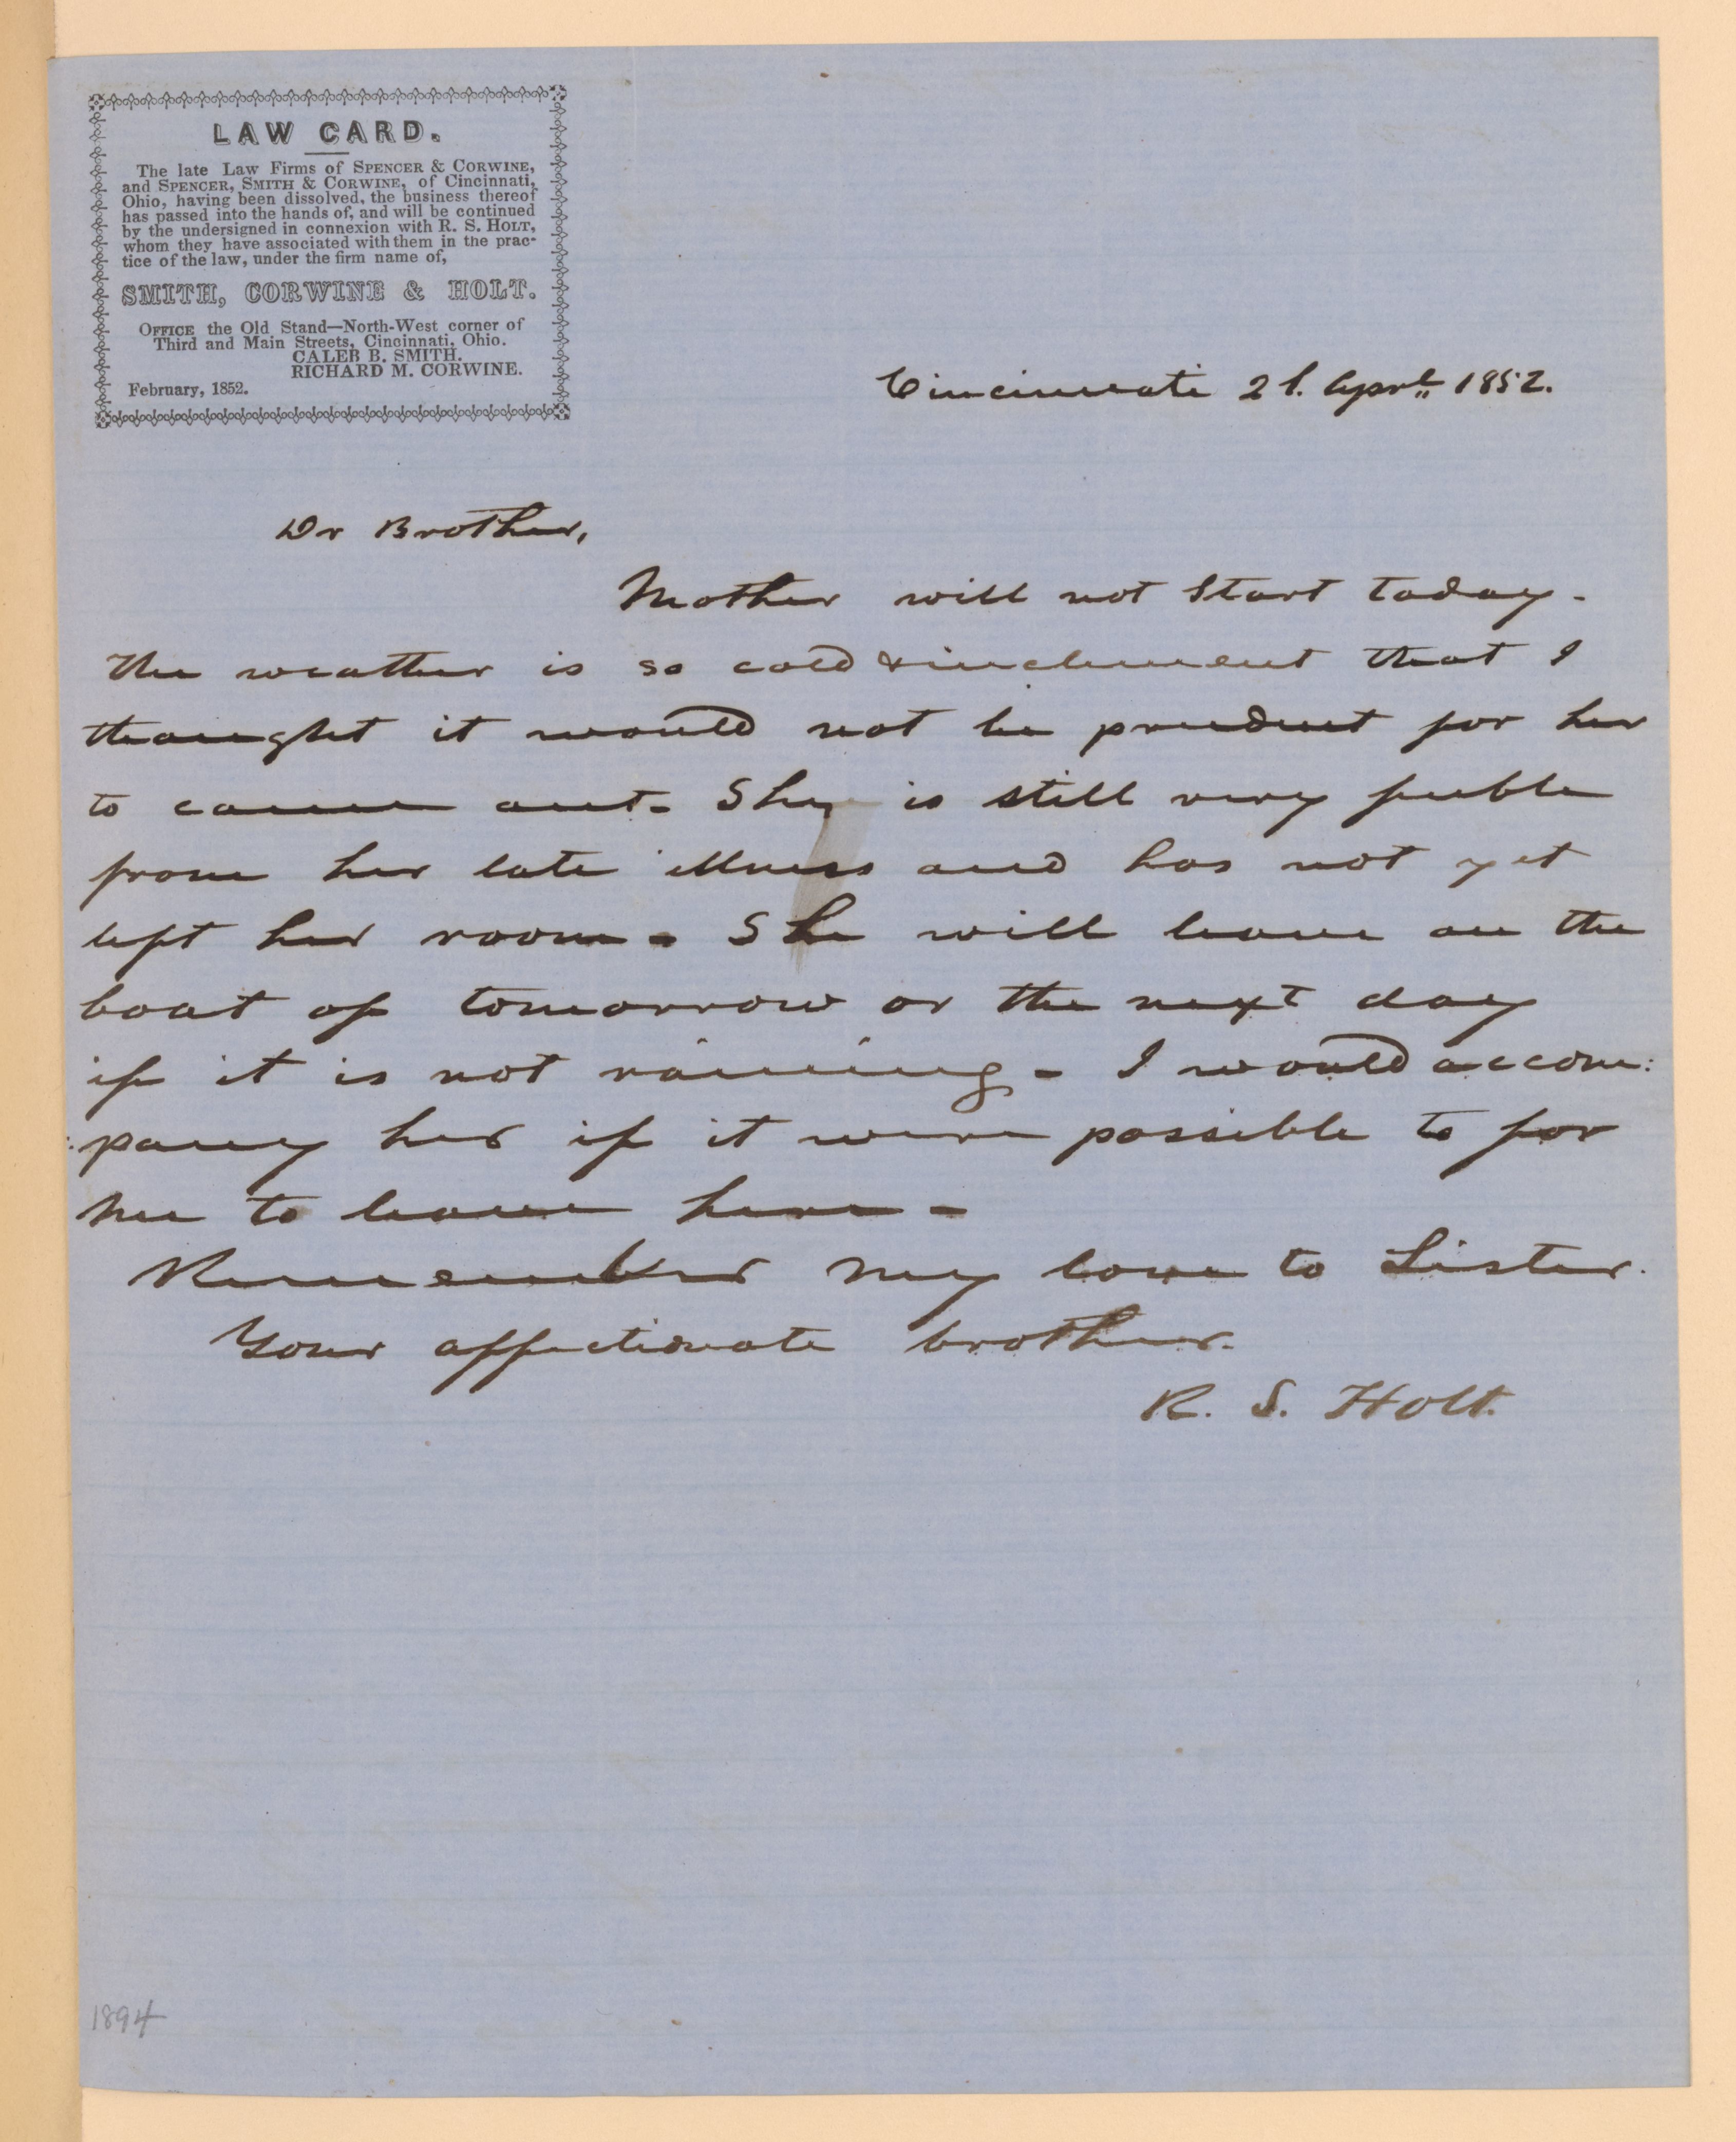 LAW CARD.
The late Law Firms of SPENCER & CORWINE,
and SPENCER, SMITH & CORWINE, of Cincinnati,
Ohio, having been dissolved, the business thereof
has passed into the hands of, and will be continued
by the undersigned in connexion with R. S. HOLT,
whom they have associated with them in the prac-
tice of the law, under the firm name of,
SMITH, CORWINE & HOLT.
OFFICE the Old Stand—North-West corner of
Third and Main Streets, Cincinnati, Ohio.
CALEB B. SMITH.
RICHARD M. CORWINE.
February, 1852.
Cincinnati 21. Aprl. 1852.
Dr Brother,
Mother will not start today.
The weather is so cold & inclement that I
thought it would not be prudent for her
to come out. She is still very feeble
from her late illness and has not yet
left her room. She will leave on the
boat of tomorrow or the next day
if it is not raining. I would accom:
:pany her if it were possible to for
me to leave here.
Remember my love to Sister.
Your affectionate brother.
R. S. Holt.
1894